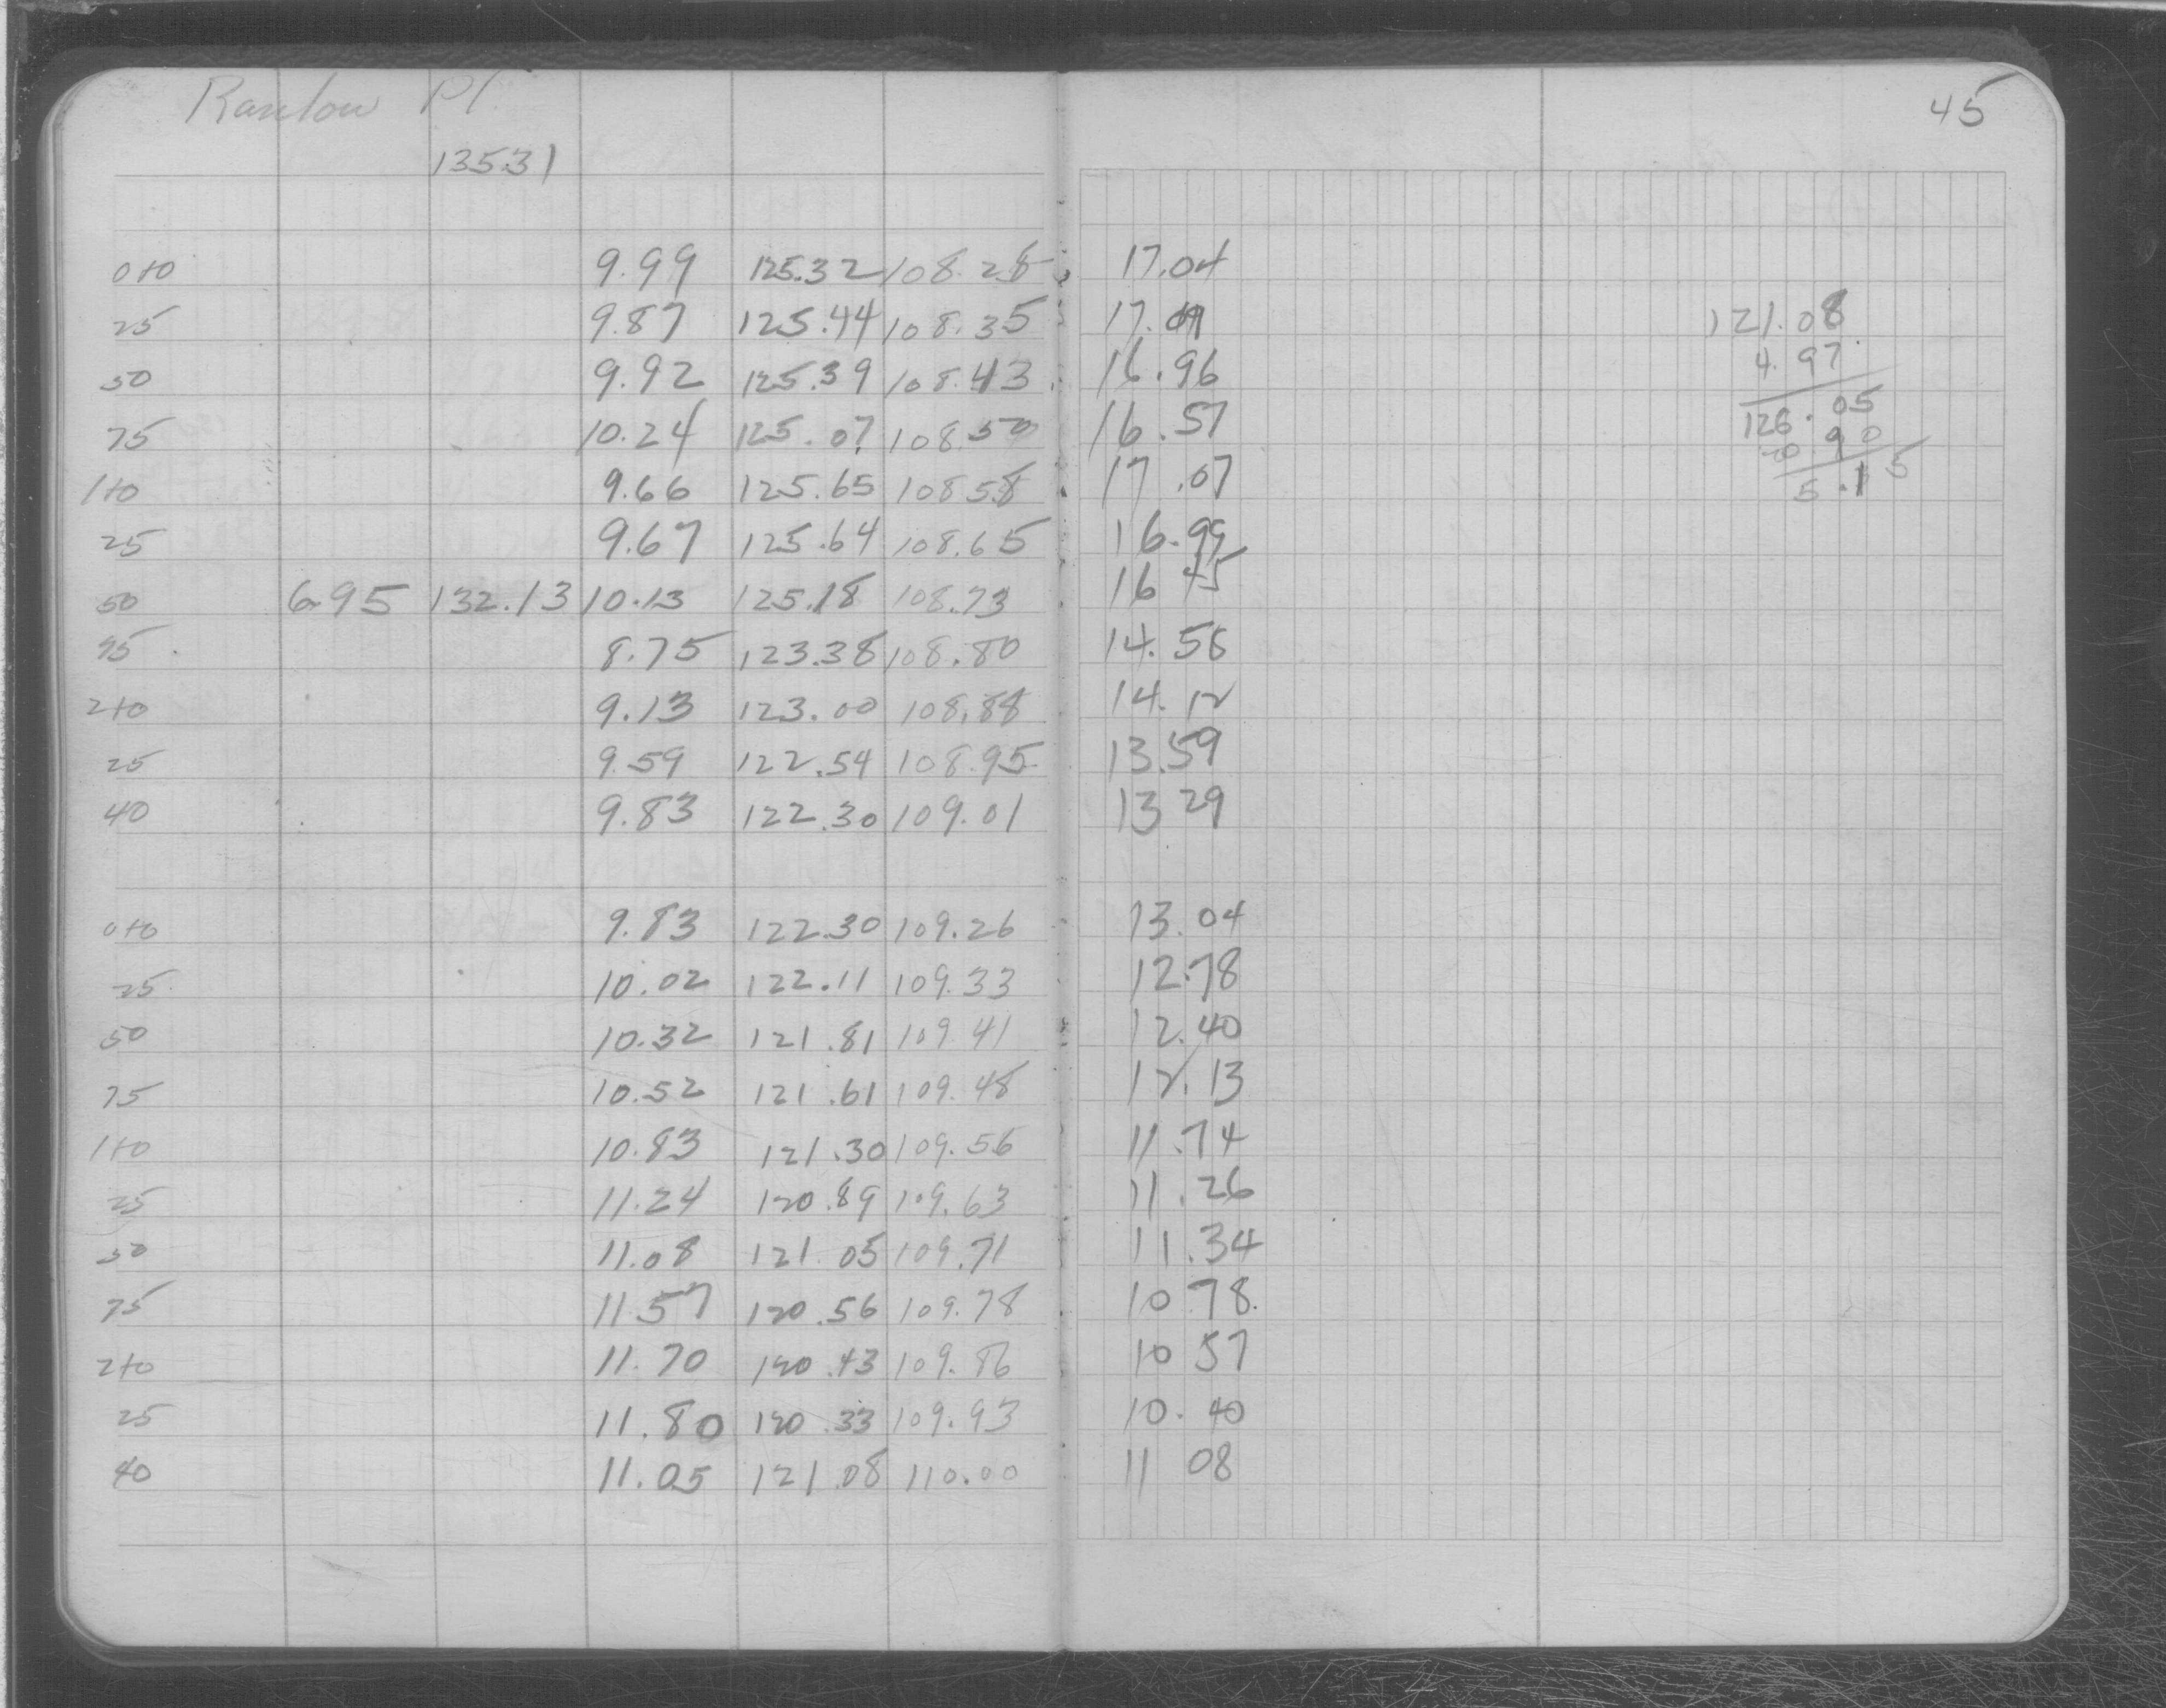 Ranlow Pl.
45
135.31
0+0 9.99 125.32 108.28 17.04
25 9.87 125.44 108.35 17.09
50 9.92 125.39 108.43 16.96
75 10.24 125.07 108.50 16.57
1+0 9.66 125.65 108.58 17.07
25 9.67 125.64 108.65 16.99
50 6.95 132.13 10.13 125.18 108.73 16 45
75 8.75 123.38 108.80 14.58
2+0 9.13 123.00 108.88 14.12
25 9.59 122.54 108.95 13.59
40 9.83 122.30 109.01 13 29
0+0 9.83 122.30 109.26 13.04
25 10.02 122.11 109.33 12.78
50 10.32 121.81 109.41 12.40
75 10.52 121.61 109.48 12.13
1+0 10.83 121.30 109.56 11.74
25 11.24 120.89 109.63 11.26
50 11.08 121.05 109.71 11.34
75 11.57 120.56 109.78 10 78.
2+0 11.70 120.43 109.86 10 57
25 11.80 120.33 109.93 10.40
40 11.05 121.08 110.00 11 08
121.08
4.97
126.05
.90
5.15